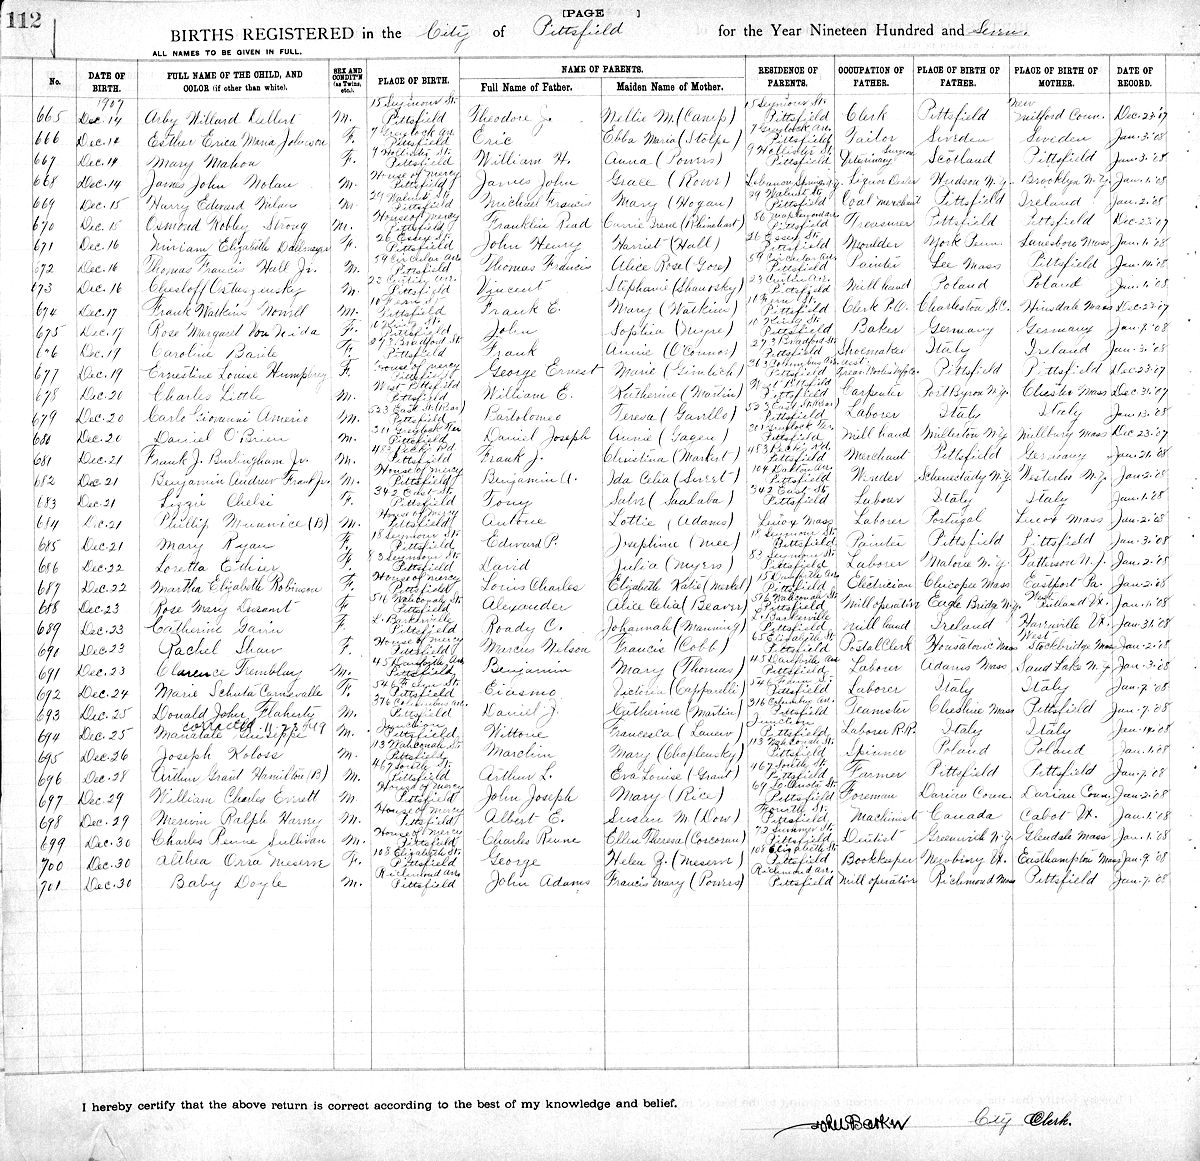 112
[PAGE ]
BIRTHS REGISTERED in the City of Pittsfield for the Year Nineteen Hundred and Seven.
ALL NAMES TO BE GIVEN IN FULL.
No. DATE OF BIRTH. FULL NAME OF THE CHILD, AND COLOR (if other than white). SEX AND CONDIT'N (as Twins, etc.) PLACE OF BIRTH. NAME OF PARENTS. Full Name of Father. Maiden Name of Mother. RESIDENCE OF PARENTS. OCCUPATION OF FATHER. PLACE OF BIRTH OF FATHER. PLACE OF BIRTH OF MOTHER. DATE OF RECORD.
1907
665 Dec. 14 Willard M. 15 Seymour St. Pittsfield Theodore J. Nellie M (Camp) 15 Seymour St. Pittsfield Clerk Pittsfield New Milford Conn. Dec. 23 '07
666 Dec. 14 Esther Erica Maria Johnson F. 7 Greylock Av. Pittsfield Eric Ebba Maria (Stolpe) 7 Greylock Av. Pittsfield Tailor Sweden Sweden Jan. 3 '08
667 Dec. 14 Mary Mahon F. Pittsfield William H. Anna (Powers) Pittsfield Veterinary Surgeon Scotland Pittsfield Jan. 3 '08
668 Dec. 14 James John Nolan M. House of Mercy Pittsfield James John Grace (Rowe) Lebanon Springs N.Y. Liquor Dealer Hudson N.Y. Brooklyn N.Y. Jan. 1 '08
669 Dec. 15 Harry Edward M. 29 Walnut St. Pittsfield Michael Francis Mary (Hogan) 29 Walnut St. Pittsfield Coal Merchant Pittsfield Ireland Jan. 2 '08
670 Dec. 15 Osmond Strong M. House of Mercy Pittsfield Franklin Read Carrie Irene (Rhinehart) Pittsfield Treasurer Pittsfield Pittsfield Dec 23 '07
671 Dec. 16 Miriam Elizabeth F. 26 Essex St. Pittsfield John Henry Harriet (Hall) 26 Essex St. Pittsfield Moulder York Penn. Lanesboro Mass Jan. 1 '08
672 Dec. 16 Thomas Francis Hall Jr. M. 59 Circular Av. Pittsfield Thomas Francis Alice Rose (Gore) 59 Circular Av. Pittsfield Painter Lee Mass Pittsfield Jan. '08
673 Dec. 16 M. Pittsfield Vincent Stephanie Pittsfield Mill hand Poland Poland Jan. '08
674 Dec. 17 Frank Watkins Howell M. 10 Fern St. Pittsfield Frank E. Mary (Watkins) 10 Fern St. Pittsfield Clerk P.O. Charleston S.C. Hinsdale Mass Dec 23 '07
675 Dec. 17 Rose Margaret Von Nida F. 10 King St. Pittsfield John Sophia (Meyre) 10 King St. Pittsfield Baker Germany Germany Jan. 7 '08
676 Dec. 19 Caroline Barile F. 273 Bradford St. Pittsfield Frank Annie (O'Connor) 273 Bradford St. Pittsfield Shoemaker Italy Ireland Jan. 3 '08
677 Dec. 19 Ernestine Louise Humphrey F. House of Mercy Pittsfield George Ernest Marie (Gimlich) Pittsfield Pittsfield Pittsfield Dec 23 '07
678 Dec. 20 Charles Little M. West Pittsfield Pittsfield William E. Katherine (Martin) West Pittsfield Pittsfield Carpenter Port Byron N.Y. Chester Mass Dec 31 '07
679 Dec. 20 Carlo Giovanni Amerio M. 523 East St (Rear) Pittsfield Bartolomeo Teresa (Gavillo) 523 East St (Rear) Pittsfield Laborer Italy Italy Jan. 13 '08
680 Dec. 20 Daniel O'Brien M. 301 Greylock Ter. Pittsfield Daniel Joseph Annie (Gagen) 301 Greylock Ter. Pittsfield Mill hand Millerton N.Y. Millbury Mass Dec 23 '07
681 Dec. 21 Frank J. Burlingham Jr. M. 483 Peck's Rd. Pittsfield Frank J. Christina (Markert) 483 Peck's Rd. Pittsfield Merchant Pittsfield Germany Jan. 21 '08
682 Dec. 21 Benjamin Andrew Frank Jr. M. House of Mercy Pittsfield Benjamin A. Ida Celia (Sweet) 104 Dalton Av. Pittsfield Winder Schenectady N.Y. Westerlo N.Y. Jan. 2 '08
683 Dec. 21 Lizzie Chelsi F. 342 East St. Pittsfield Tony (Saalaba) 342 East St. Pittsfield Labour Italy Italy Jan. 1 '08
684 Dec. 21 Phillip (B) M. House of Mercy Pittsfield Antone Lottie (Adams) Lenox Mass Laborer Portugal Lenox Mass Jan. 2 '08
685 Dec. 21 Mary Ryan F. 18 Seymour St. Pittsfield Edward P. Josephine (Mee) 18 Seymour St. Pittsfield Painter Pittsfield Pittsfield Jan. 3 '08
686 Dec. 22 Loretta Ethier F. 83 Seymour St. Pittsfield David Julia (Myers) 83 Seymour St. Pittsfield Laborer Malone N.Y. Patterson N.J. Jan. 2 '08
687 Dec. 22 Martha Elizabeth Robinson F. House of Mercy Pittsfield Louis Charles Elizabeth Katie (Market) Pittsfield Electrician Chicopee Mass Eastport Pa. Jan. 2 '08
688 Dec. 23 Rose Mary F. 516 Wahconah St. Pittsfield Alexander Alice Celia (Beaver) 516 Wahconah St. Pittsfield Mill operative Eagle Bridge N.Y. West Rutland Vt. Jan. 1 '08
689 Dec. 23 Catherine Gavin F. L. Barkerville Pittsfield Roady C. Johannah (Manning) L. Barkerville Pittsfield Mill hand Ireland Harrisville Vt. Jan. 31 '08
690 Dec. 23 Rachel Shaw F. House of Mercy Pittsfield Marcus Nelson Francis (Cobb) 65 Elizabeth St. Pittsfield Postal Clerk Housatonic Mass West Stockbridge Mass Jan. 2 '08
691 Dec. 23 Clarence Tremblay M. 45 Danforth Av. Pittsfield Benjamin Mary (Thomas) 45 Danforth Av. Pittsfield Labour Adams Mass Sand Lake N.Y. Jan. 3 '08
692 Dec. 24 Marie Carnevalle F. 546 Fenn St. Pittsfield Erasmo Victoria (Capparelli) 546 Fenn St. Pittsfield Laborer Italy Italy Jan. 7 '08
693 Dec. 25 Donald John Flaherty M. 376 Columbus Av. Pittsfield Daniel J. Catherine (Martin) 316 Columbus Av. Pittsfield Teamster Cheshire Mass Pittsfield Jan. 7 '08
corrected
694 Dec. 25 Giuseppe M. Junction Pittsfield Vittorie Francesca Junction Pittsfield Laborer R.R. Italy Italy Jan. '08
695 Dec. 26 Joseph Koloss M. 113 Wahconah St. Pittsfield Marclin Mary (Chaplensky) 113 Wahconah St. Pittsfield Spinner Poland Poland Jan. 1 '08
696 Dec. 28 Arthur Grant Hamilton (B) M. 467 South St. Pittsfield Arthur L. Eva Louise (Grant) 467 South St. Pittsfield Farmer Pittsfield Pittsfield Jan. 7 '08
697 Dec. 29 William Charles Errett M. House of Mercy Pittsfield John Joseph Mary (Rice) Pittsfield Foreman Darien Conn. Darian Conn. Jan. 2 '08
698 Dec. 29 Merwin Ralph Harvey M. House of Mercy Pittsfield Albert E. Susan M (Dow) Fourth St. Pittsfield Machinist Canada Cabot Vt. Jan. 1 '08
699 Dec. 30 Charles Renne Sullivan M. House of Mercy Pittsfield Charles Renne Ellen Theresa (Corcoran) 72 Summer St. Pittsfield Dentist Greenwich N.Y. Glendale Mass Jan. 1 '08
700 Dec. 30 Althea Orra Meserve F. 108 Elizabeth St. Pittsfield George Helen Z. (Meserve) 108 Elizabeth St. Pittsfield Bookkeeper Newbury Vt. Easthampton Mass Jan. 9 '08
701 Dec. 30 Baby Doyle M. Richmond Av. Pittsfield John Adams Francis Mary (Powers) Richmond Av. Pittsfield Mill operative Richmond Mass Pittsfield Jan. 7 '08
I hereby certify that the above return is correct according to the best of my knowledge and belief.
John Barker City Clerk.